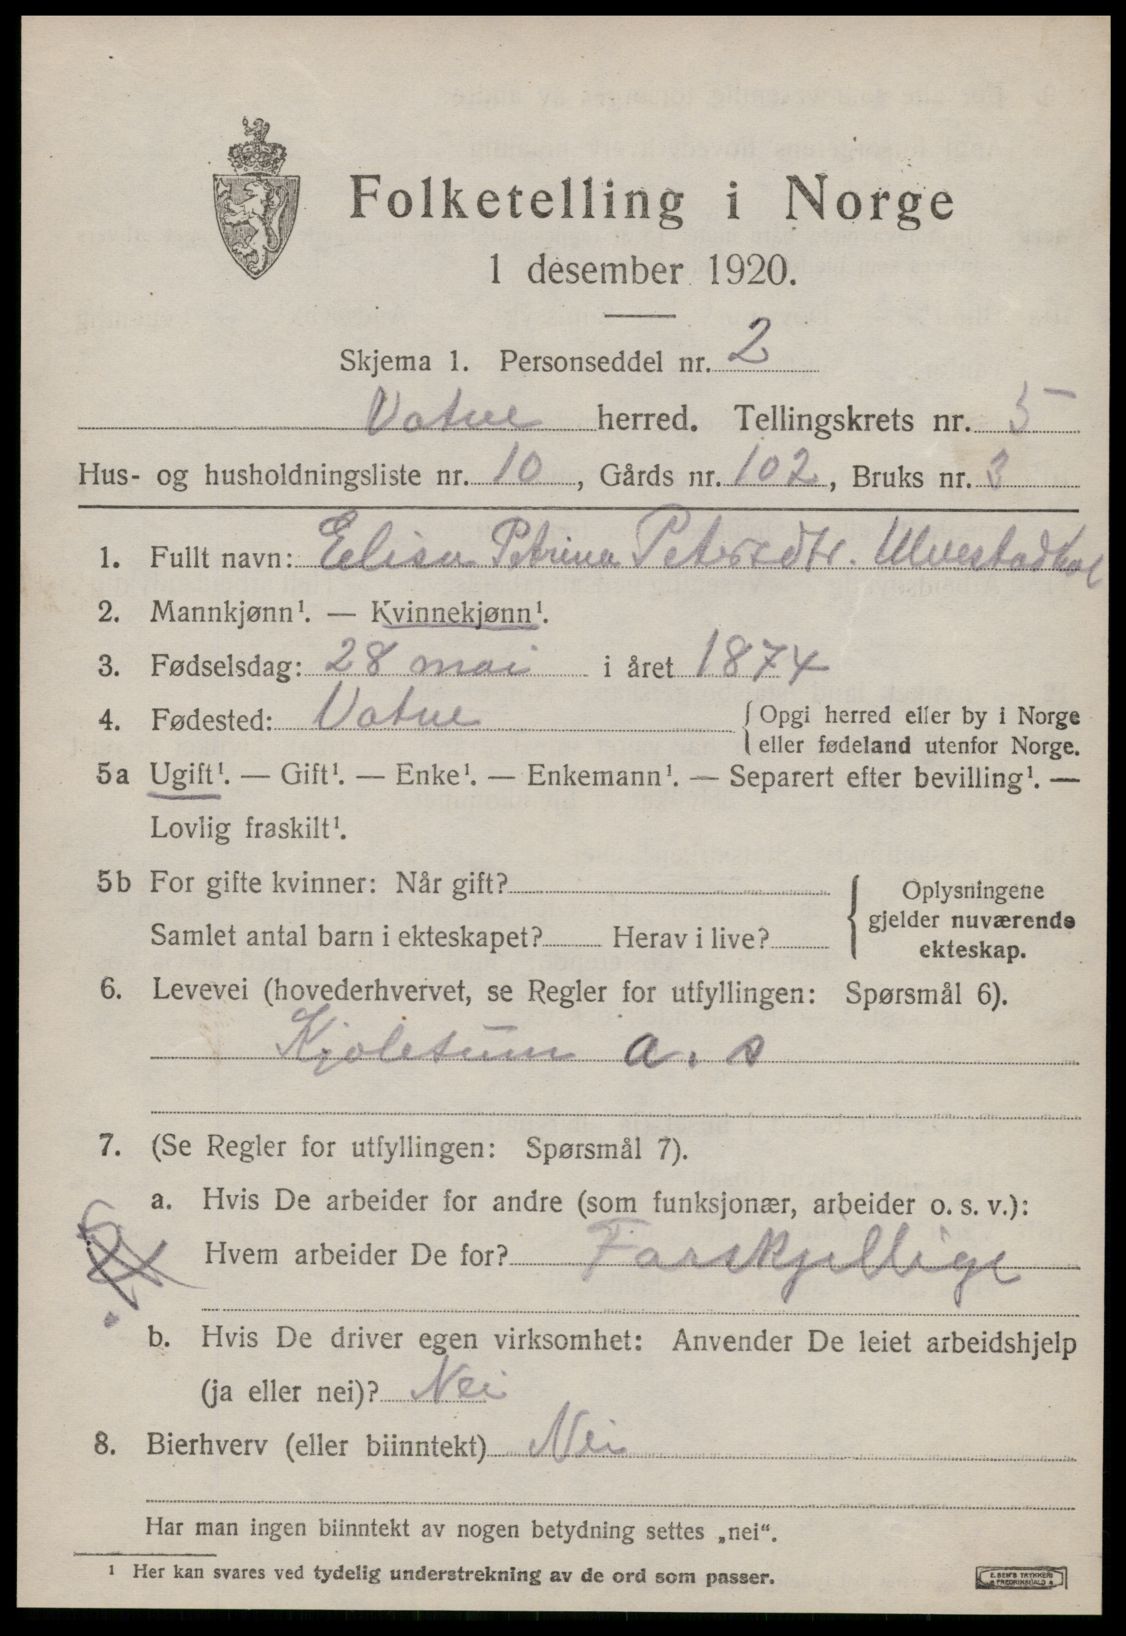 Folketelling i Norge
1 desember 1920.
Skjema 1. Personseddel nr. 2
Vatne herred. Tellingskrets nr. 5
Hus- og husholdningsliste nr. 10, Gårds nr. 102, Bruks nr. 3
1. Fullt navn: Elisa Petrina Petersdtr. Ulvestadhal
2. Mannkjønn¹. — Kvinnekjønn¹.
3. Fødselsdag: 28 mai i året 1874
4. Fødested: Vatne {Opgi herred eller by i Norge
eller fødeland utenfor Norge.
5a Ugift¹. — Gift¹. — Enke¹. — Enkemann¹. — Separert efter bevilling¹. —
Lovlig fraskilt¹.
5b For gifte kvinner: Når gift?
Samlet antal barn i ekteskapet? Herav i live?
{Oplysningene
gjelder nuværende
ekteskap.
6. Levevei (hovederhvervet, se Regler for utfyllingen: Spørsmål 6).
Kjolesum a. s
7. (Se Regler for utfyllingen: Spørsmål 7).
a. Hvis De arbeider for andre (som funksjonær, arbeider o. s. v.):
Hvem arbeider De for? Forskjellige
b. Hvis De driver egen virksomhet: Anvender De leiet arbeidshjelp
(ja eller nei)? Nei
8. Bierhverv (eller biinntekt) Nei
Har man ingen biinntekt av nogen betydning settes „nei“.
¹ Her kan svares ved tydelig understrekning av de ord som passer.
E. SEM'S TRYKKERI
FREDRIKSHALD